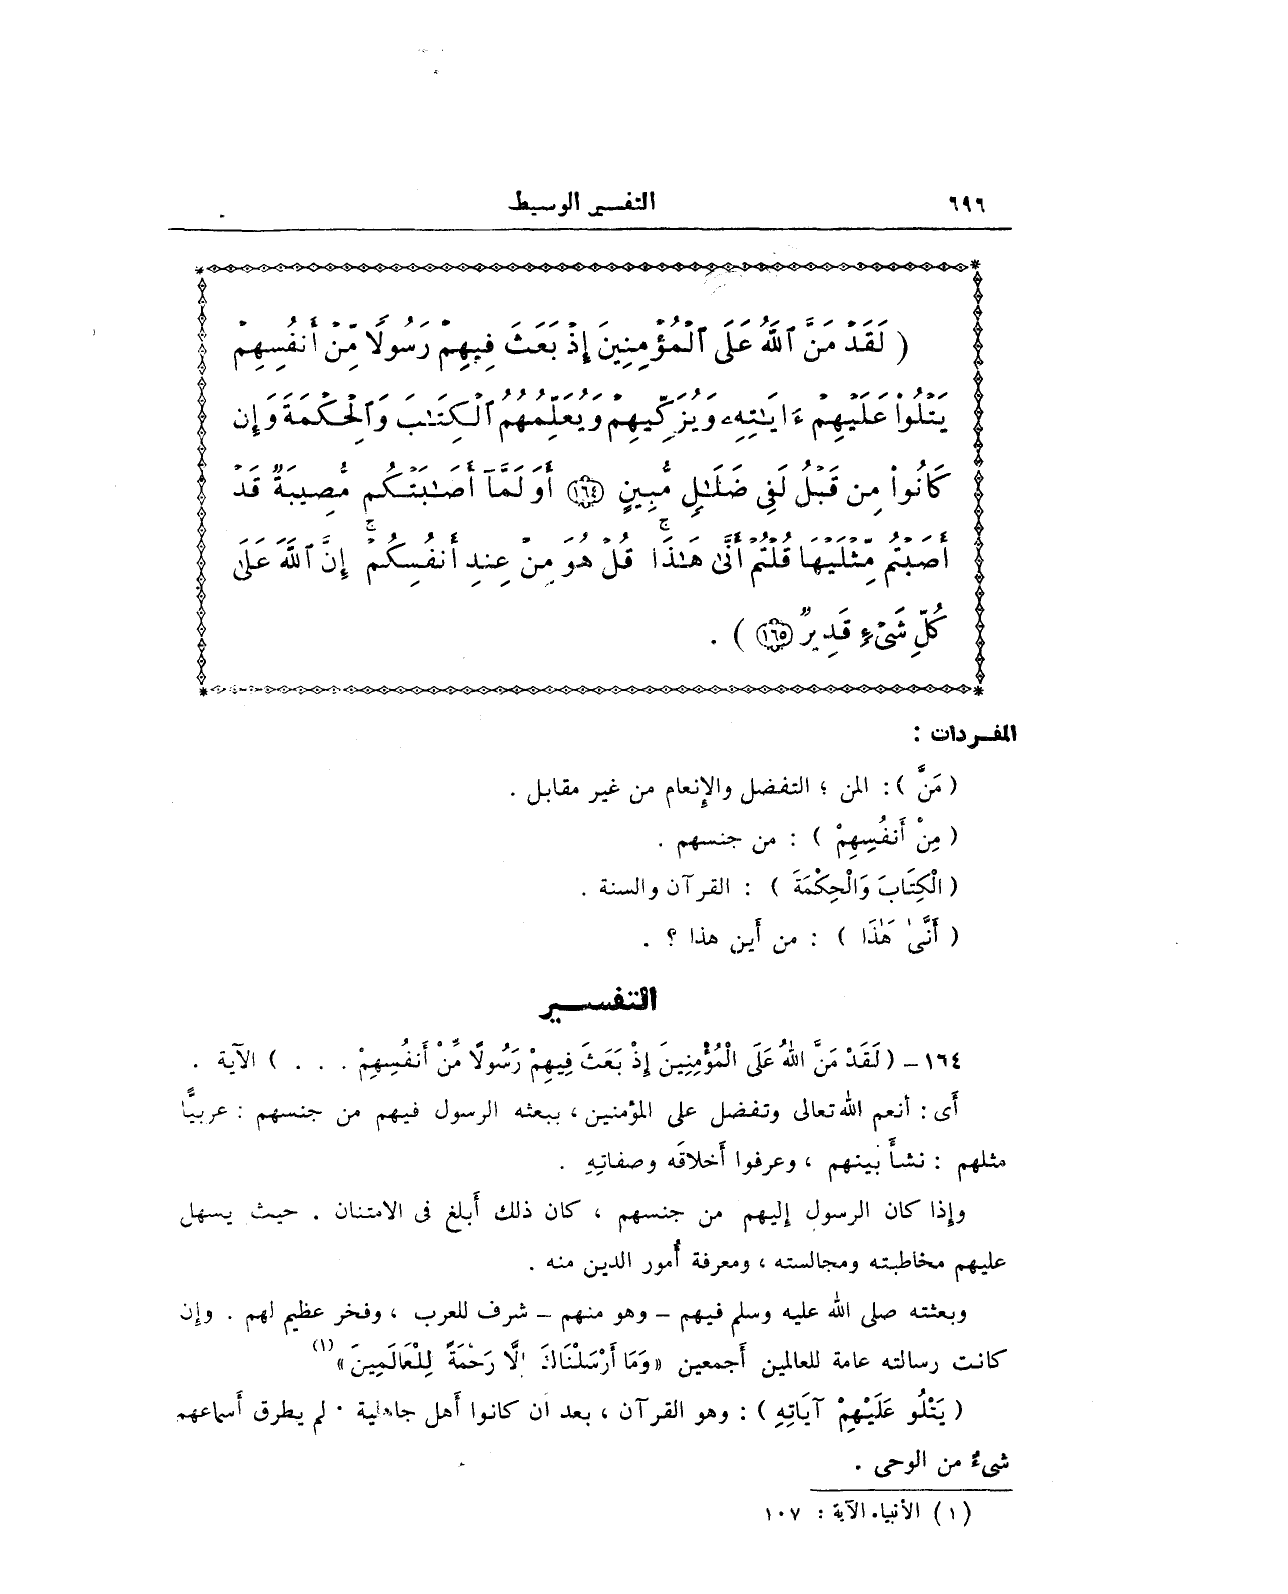 ٦٩٦
التفسير الوسيط
( لَقَدْ مَنَّ ٱللَّهُ عَلَى ٱلْمُؤْمِنِينَ إِذْ بَعَثَ فِيهِمْ رَسُولًا مِّنْ أَنفُسِهِمْ
يَتْلُوا۟ عَلَيْهِمْ ءَايَٰتِهِۦ وَيُزَكِّيهِمْ وَيُعَلِّمُهُمُ ٱلْكِتَٰبَ وَٱلْحِكْمَةَ وَإِن
كَانُوا۟ مِن قَبْلُ لَفِى ضَلَٰلٍ مُّبِينٍ ١٦٤ أَوَلَمَّآ أَصَٰبَتْكُم مُّصِيبَةٌ قَدْ
أَصَبْتُم مِّثْلَيْهَا قُلْتُمْ أَنَّىٰ هَٰذَا ۖ قُلْ هُوَ مِنْ عِندِ أَنفُسِكُمْ ۗ إِنَّ ٱللَّهَ عَلَىٰ
كُلِّ شَىْءٍ قَدِيرٌ ١٦٥ ) .
المفردات :
( مَنَّ ) : المن ؛ التفضل والإنعام من غير مقابل .
( مِنْ أَنفُسِهِمْ ) : من جنسهم .
( الْكِتَابَ وَالْحِكْمَةَ ) : القرآن والسنة .
( أَنَّىٰ هَٰذَا ) : من أين هذا ؟ .
التفسير
١٦٤ - ( لَقَدْ مَنَّ اللهُ عَلَى الْمُؤْمِنِينَ إِذْ بَعَثَ فِيهِمْ رَسُولًا مِّنْ أَنفُسِهِمْ . . . ) الآية .
أى : أنعم الله تعالى وتفضل على المؤمنين ، ببعثه الرسول فيهم من جنسهم : عربيًّا
مثلهم : نشأ بينهم ، وعرفوا أخلاقَه وصفاتِهِ .
وإذا كان الرسول إليهم من جنسهم ، كان ذلك أبلغ فى الامتنان . حيث يسهل
عليهم مخاطبته ومجالسته ، ومعرفة أُمور الدين منه .
وبعثته صلى الله عليه وسلم فيهم - وهو منهم - شرف للعرب ، وفخر عظيم لهم . وإن
كانت رسالته عامة للعالمين أجمعين «وَمَا أَرْسَلْنَاكَ إِلَّا رَحْمَةً لِّلْعَالَمِينَ» (١)
( يَتْلُو عَلَيْهِمْ آيَاتِهِ ) : وهو القرآن ، بعد ان كانوا أهل جاهلية . لم يطرق أسماعهم
شىءٌ من الوحى .
( ١ ) الأنبياء الآية : ١٠٧